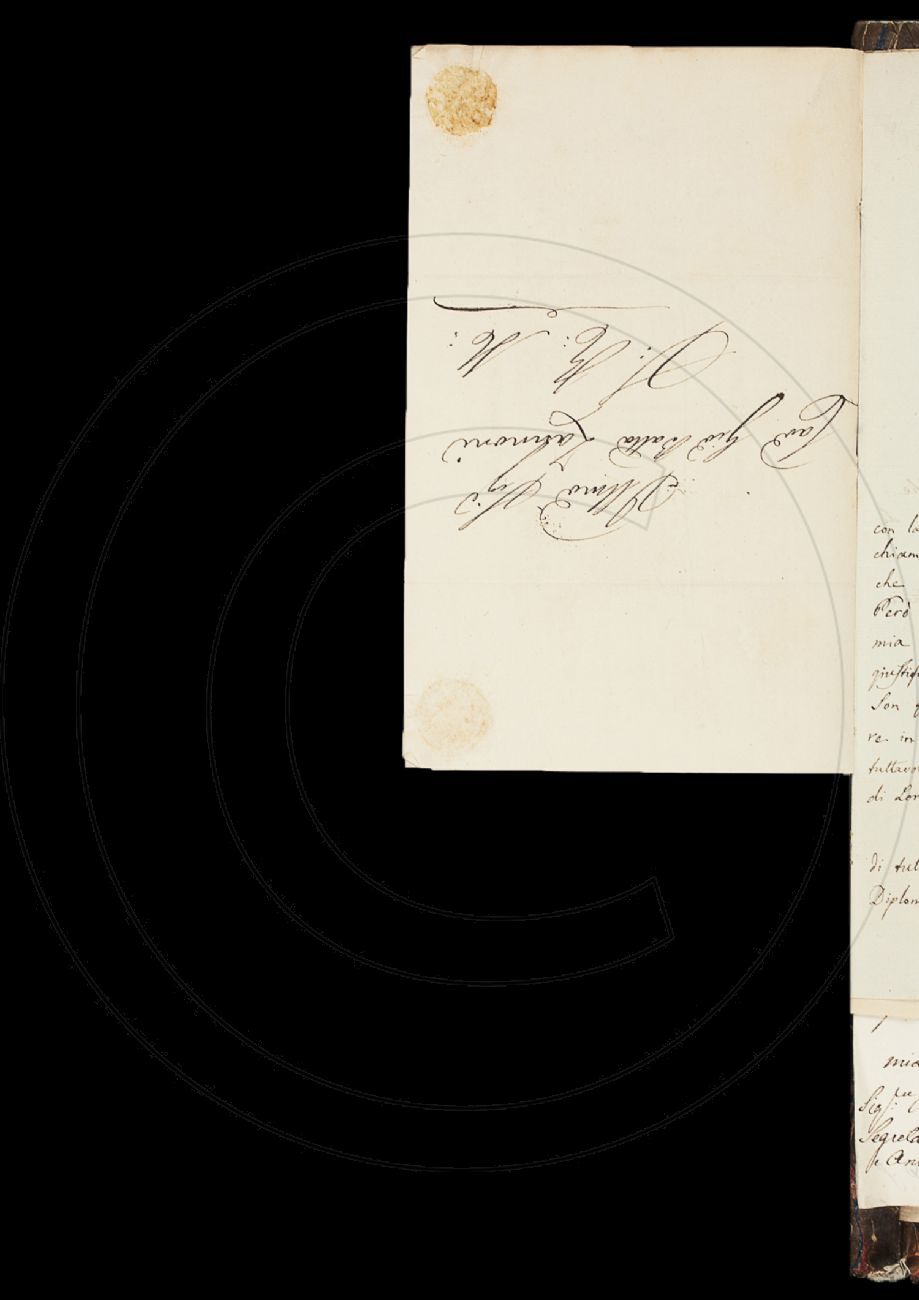 Illmo Sigr
Cav.e Gio Batta Zannoni
S: R: M:
con la
chiam
che
Però
mia
giustif
Son
re in
tuttavo
di Lor
di tut
Diplom
mia
Sigr
Segreta